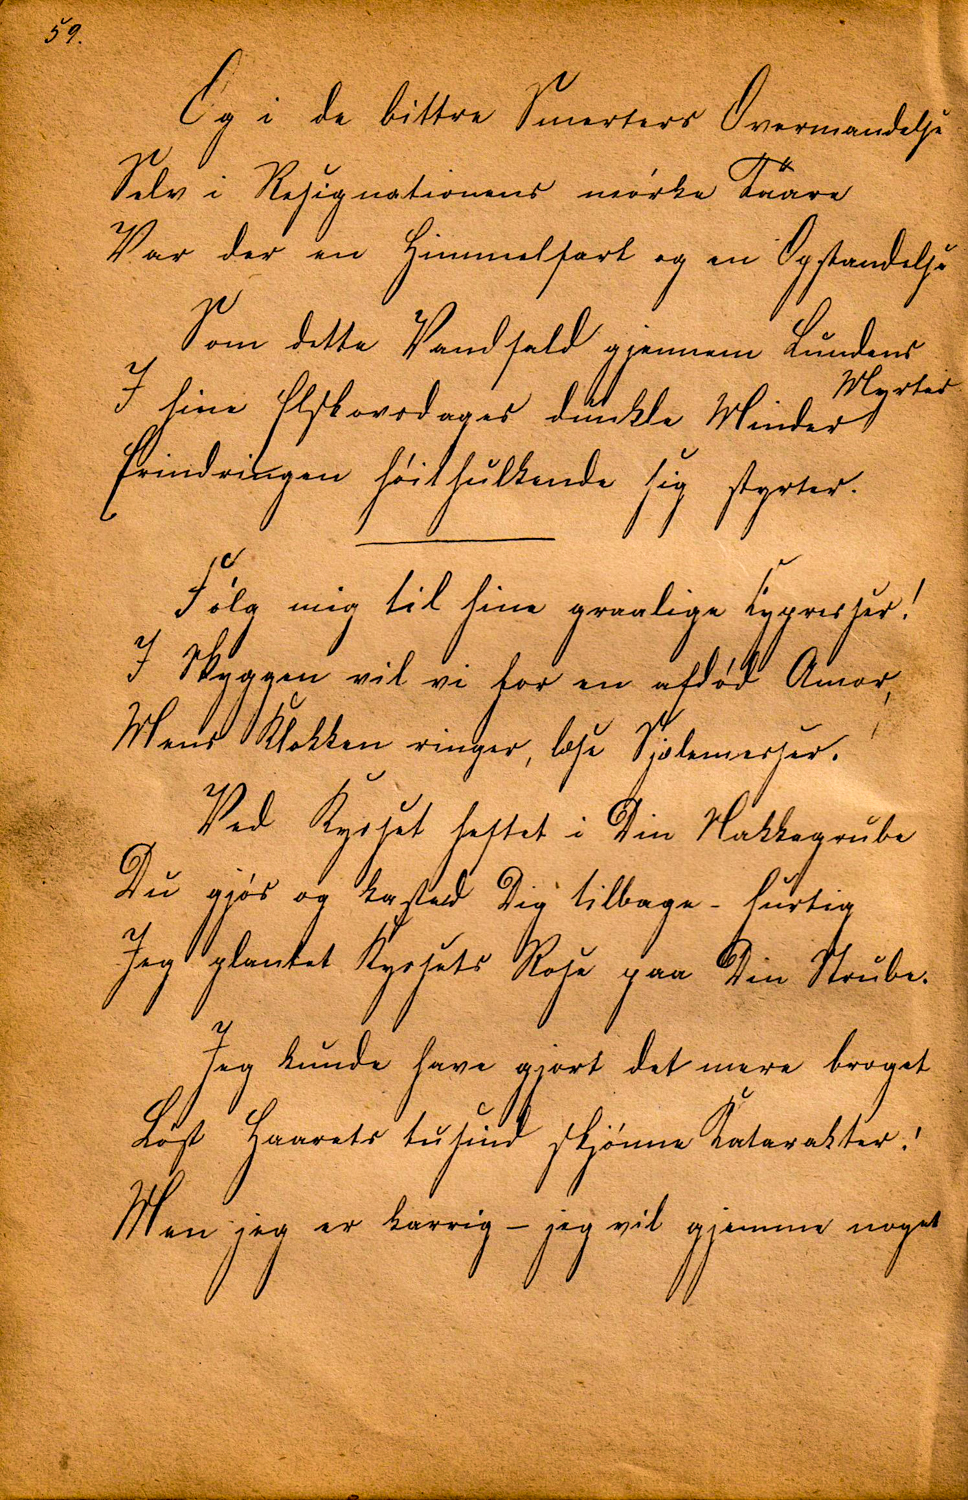 59.
Og i de bittre Smerters Overmandelse
Selv i Resignationens mörke Taare
Var der en Himmelfart og en Opstandelse
Som dette Vandfald gjennem Lundens
Myrter
I hine Elskovsdages dunkle Minder
Erindringen höithulkende sig styrter.
Fölg mig til hine graalige Cypresser!
I Skyggen vil vi for en afdöd Amor,
Mens Klokken ringer, læse Sjælemesser.
Ved Kysset heftet i Din Nakkegrube
Du gjös og kasted Dig tilbage - hurtig
Jeg plantet Kyssets Rose paa Din Strube.
Jeg kunde have gjort det mere broget
Löst Haarets tusind skjönne Katarakter!
Men jeg er karrig – jeg vil gjemme noget